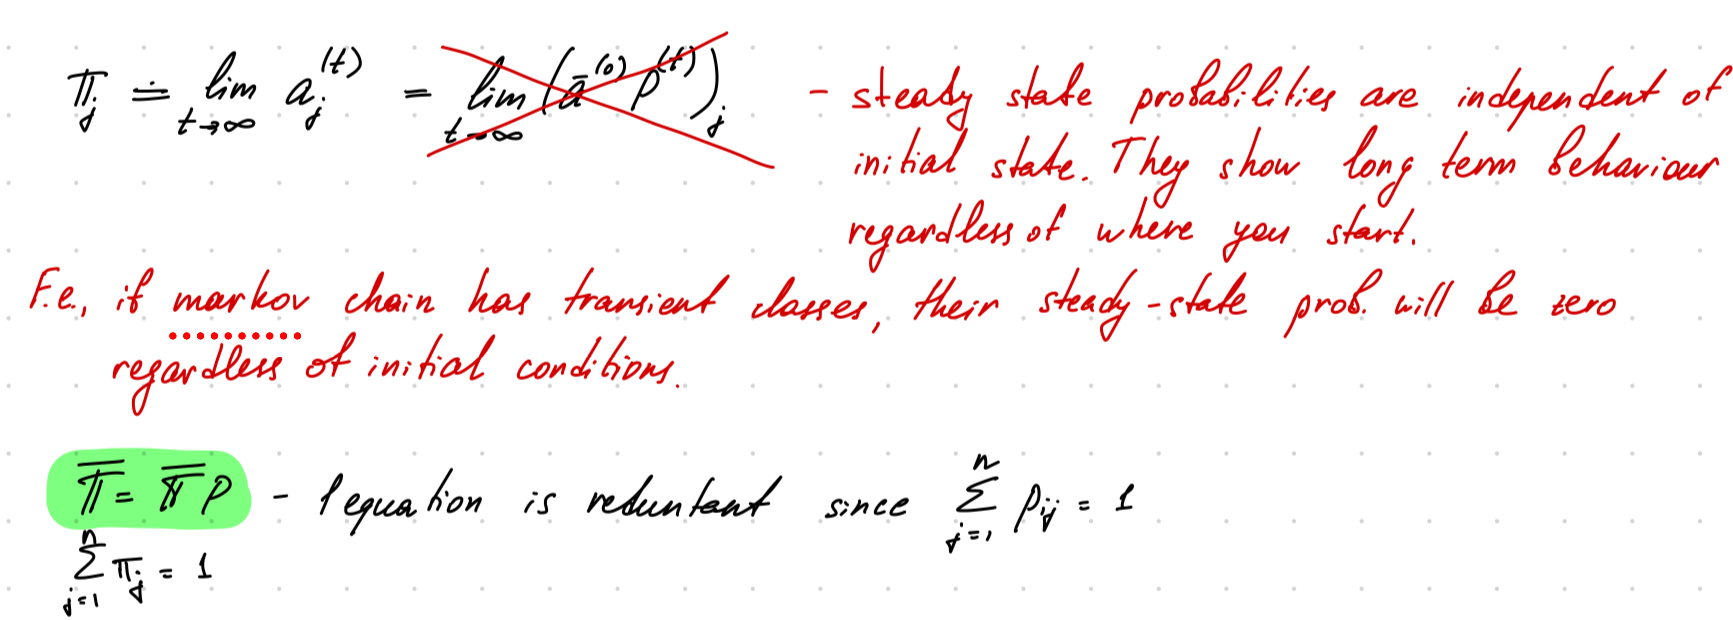 π_j ≐ lim_{t→∞} a_j^{(t)} = lim_{t→∞} (ā^{(0)} P^{(t)})_j - steady state probabilities are independent of
initial state. They show long term behaviour
regardless of where you start.
F.e., if markov chain has transient classes, their steady-state prob. will be zero
regardless of initial conditions.
π̄ = π̄ P - 1 equation is reduntant since ∑_{j=1}^{n} p_{ij} = 1
∑_{j=1}^{n} π_j = 1